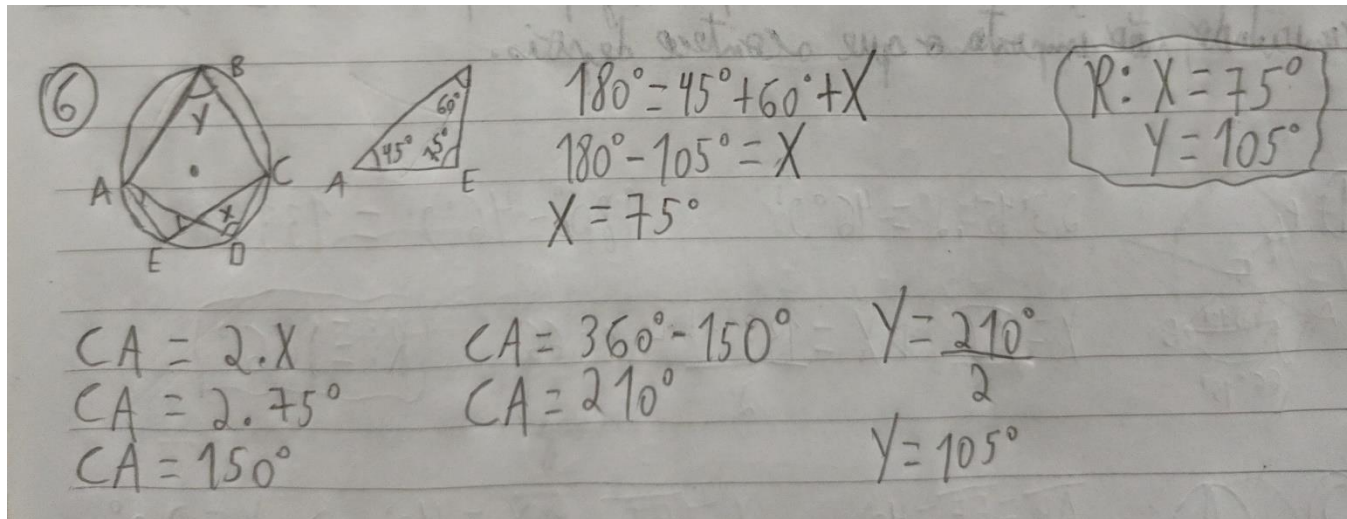 6
B
Y
A
C
X
E
D
60°
45°
75°
A
E
180° = 45° + 60° + X
180° - 105° = X
X = 75°
R: X = 75°
Y = 105°
CA = 2.X
CA = 2.75°
CA = 150°
CA = 360° - 150°
CA = 210°
Y = 210°
2
Y = 105°